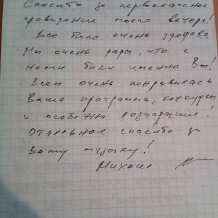 Спасибо за первоклассное
проведение моего вечера!
Всё было очень здорово.
Мы очень рады, что с
нами были именно Вы!
Всем очень понравилась
Ваша программа, конкурсы
и особенно розыгрыши!
Отдельное спасибо за
Вашу музыку!
Михаил